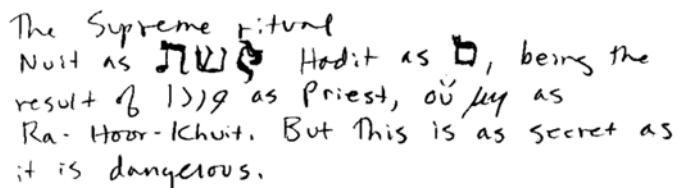 The Supreme ritual
Nuit as קשת Hadit as ם, being the
result of as Priest, οὐ μη as
Ra-Hoor-Khuit. But This is as secret as
it is dangerous.